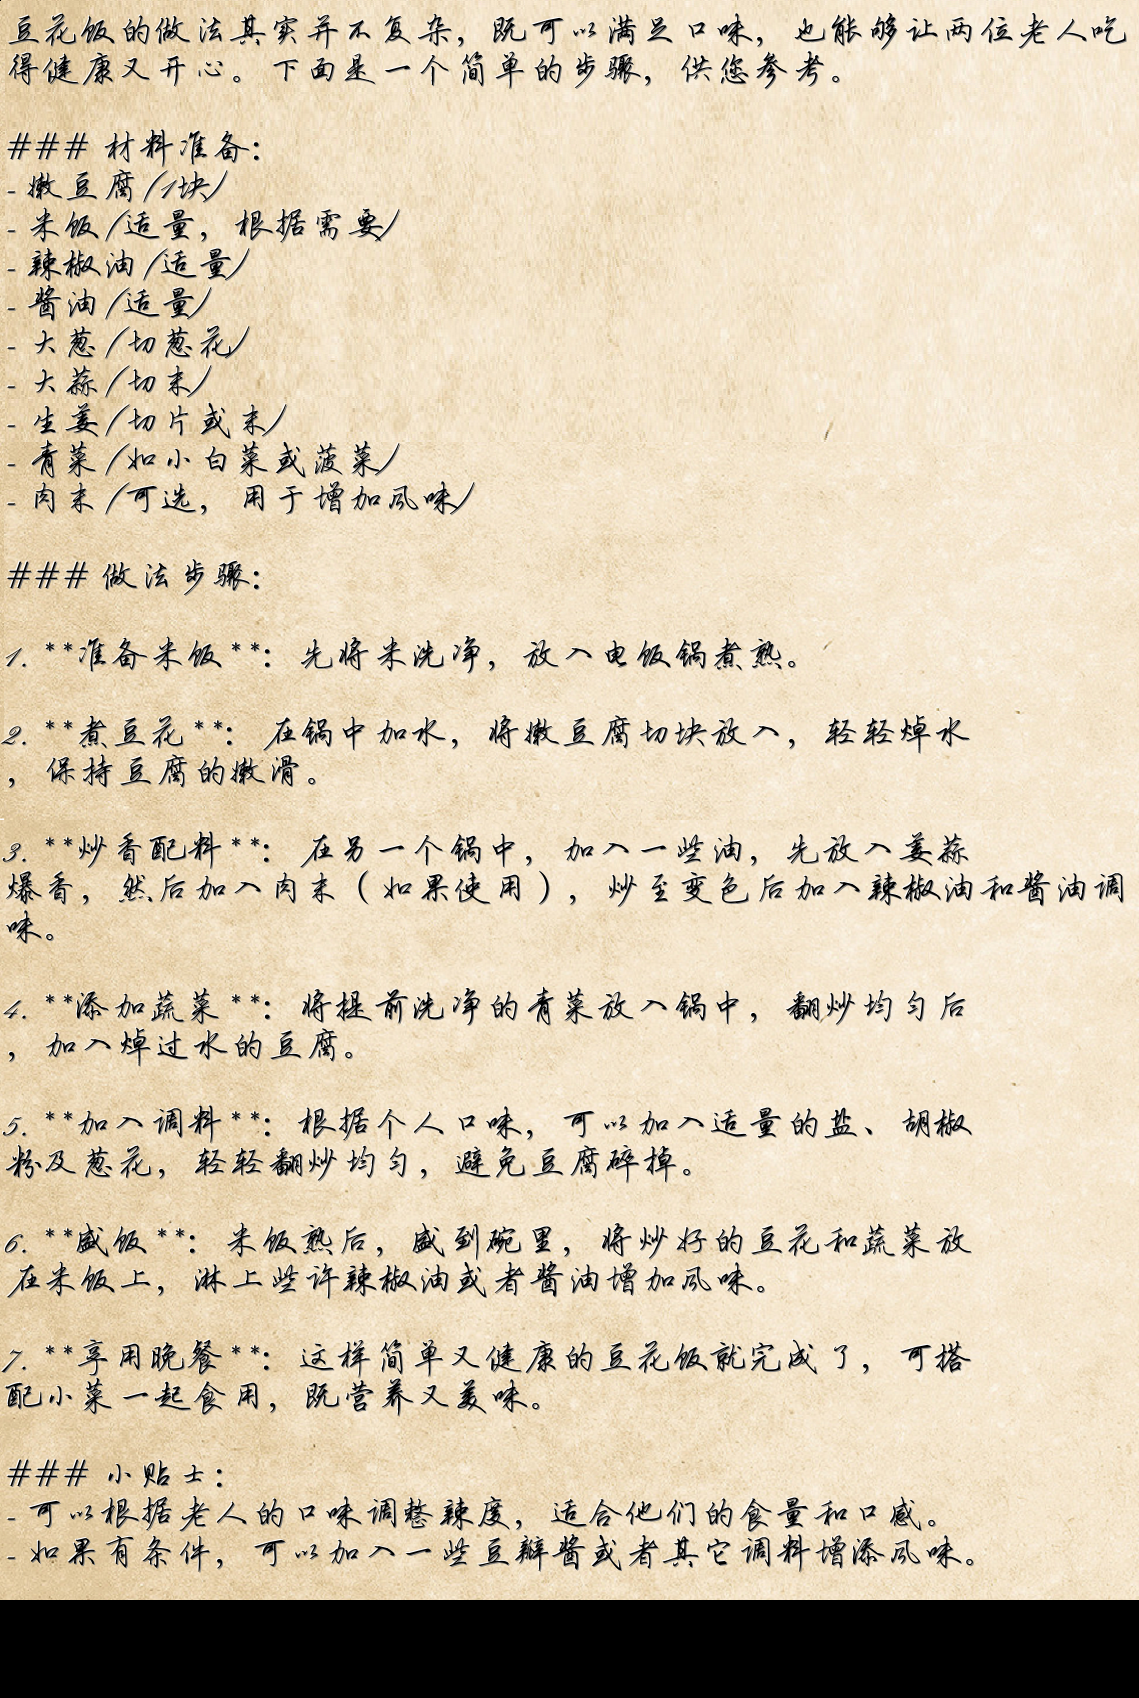 豆花饭的做法其实并不复杂，既可以满足口味，也能够让两位老人吃
得健康又开心。下面是一个简单的步骤，供您参考。
### 材料准备：
- 嫩豆腐（1块）
- 米饭（适量，根据需要）
- 辣椒油（适量）
- 酱油（适量）
- 大葱（切葱花）
- 大蒜（切末）
- 生姜（切片或末）
- 青菜（如小白菜或菠菜）
- 肉末（可选，用于增加风味）
### 做法步骤：
1. **准备米饭**：先将米洗净，放入电饭锅煮熟。
2. **煮豆花**：在锅中加水，将嫩豆腐切块放入，轻轻焯水
，保持豆腐的嫩滑。
3. **炒香配料**：在另一个锅中，加入一些油，先放入姜蒜
爆香，然后加入肉末（如果使用），炒至变色后加入辣椒油和酱油调
味。
4. **添加蔬菜**：将提前洗净的青菜放入锅中，翻炒均匀后
，加入焯过水的豆腐。
5. **加入调料**：根据个人口味，可以加入适量的盐、胡椒
粉及葱花，轻轻翻炒均匀，避免豆腐碎掉。
6. **盛饭**：米饭熟后，盛到碗里，将炒好的豆花和蔬菜放
在米饭上，淋上些许辣椒油或者酱油增加风味。
7. **享用晚餐**：这样简单又健康的豆花饭就完成了，可搭
配小菜一起食用，既营养又美味。
### 小贴士：
- 可以根据老人的口味调整辣度，适合他们的食量和口感。
- 如果有条件，可以加入一些豆瓣酱或者其它调料增添风味。